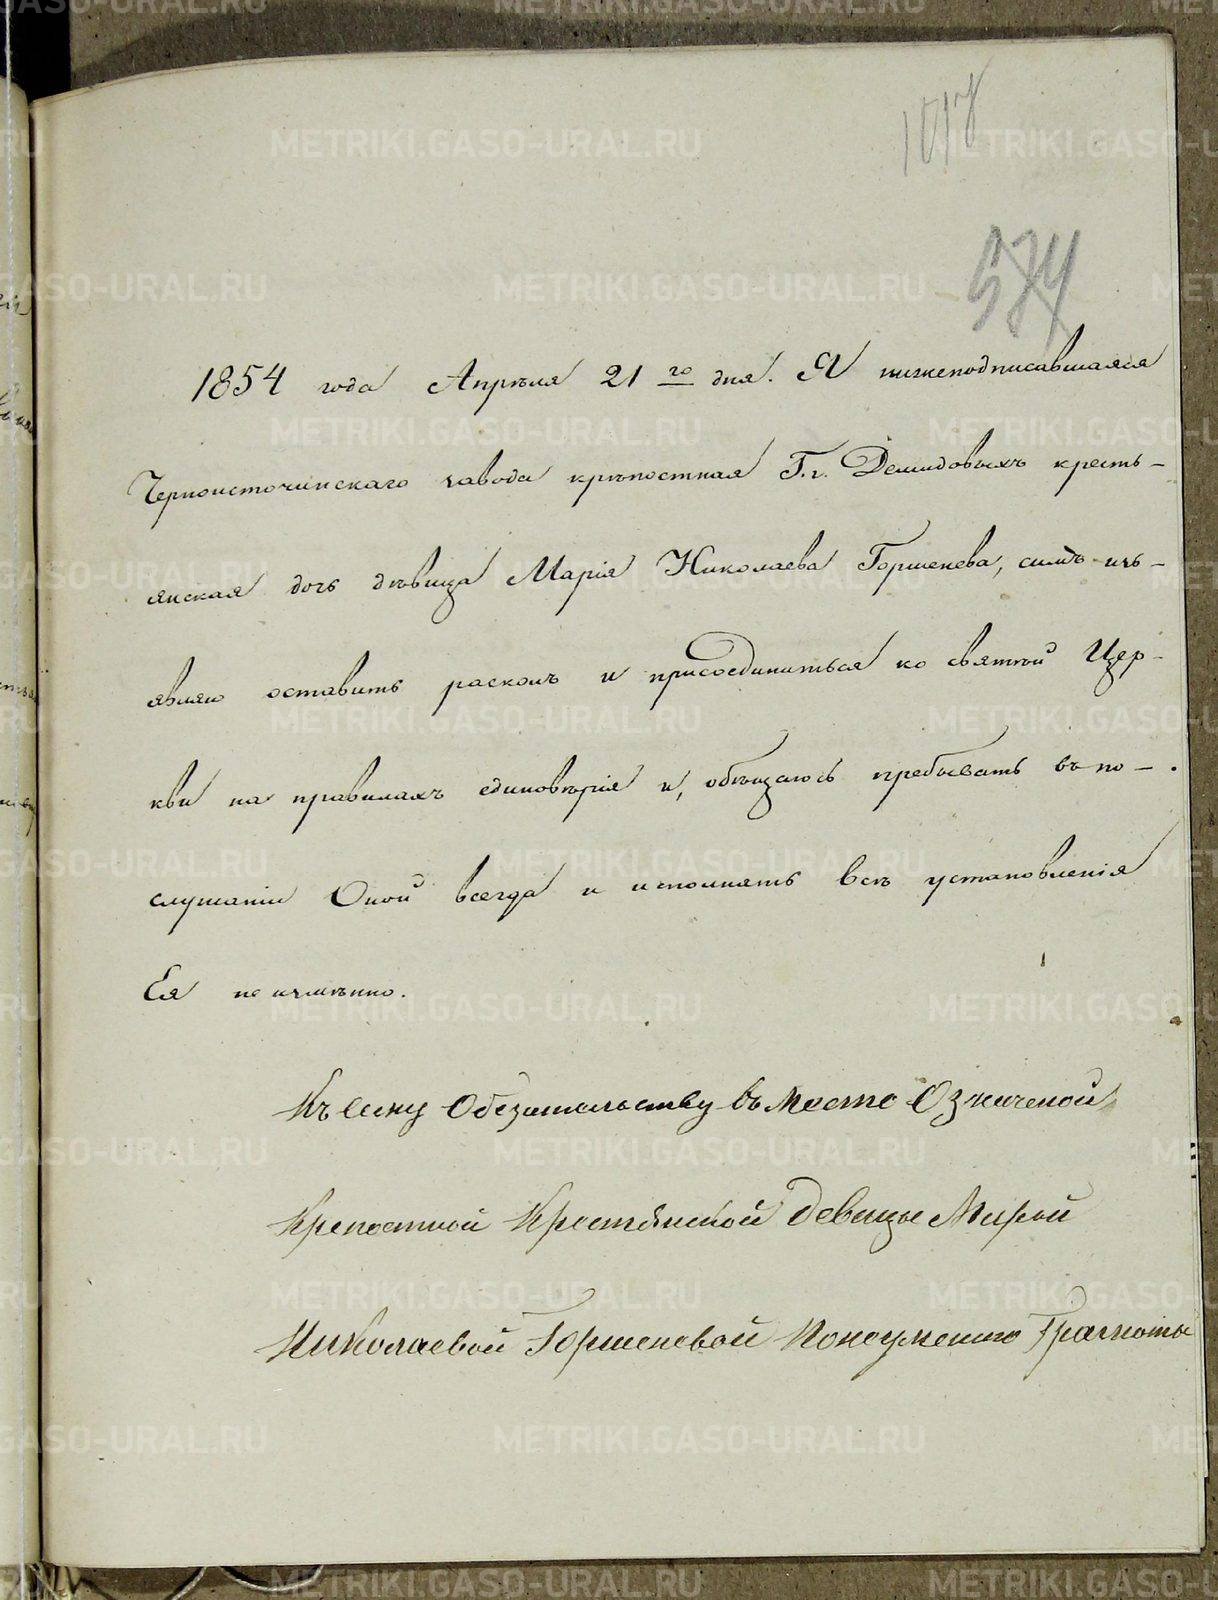 574
1854 года Апрѣля 21 го дня. Я нижеподписавшаяся
Черноисточинскаго завода крѣпостная Г.г. Демидовыхъ кресть-
янская дочь дѣвица Марія Николаева Горшенева, симъ изъ-
являю оставить расколъ и присоединиться ко святой Цер-
кви на правилахъ единовѣрія и, обѣщаюсь пребывать въ по-
слушаніи Оной всегда и исполнять всѣ установленія
Ея неизмѣнно.
Къ сему Обезательству въ место Означеной
Крепостной Крестьянской девицы Марьи
Николаевой Горшеневой Понеумению Грамоты
METRIKI.GASO-URAL.RU